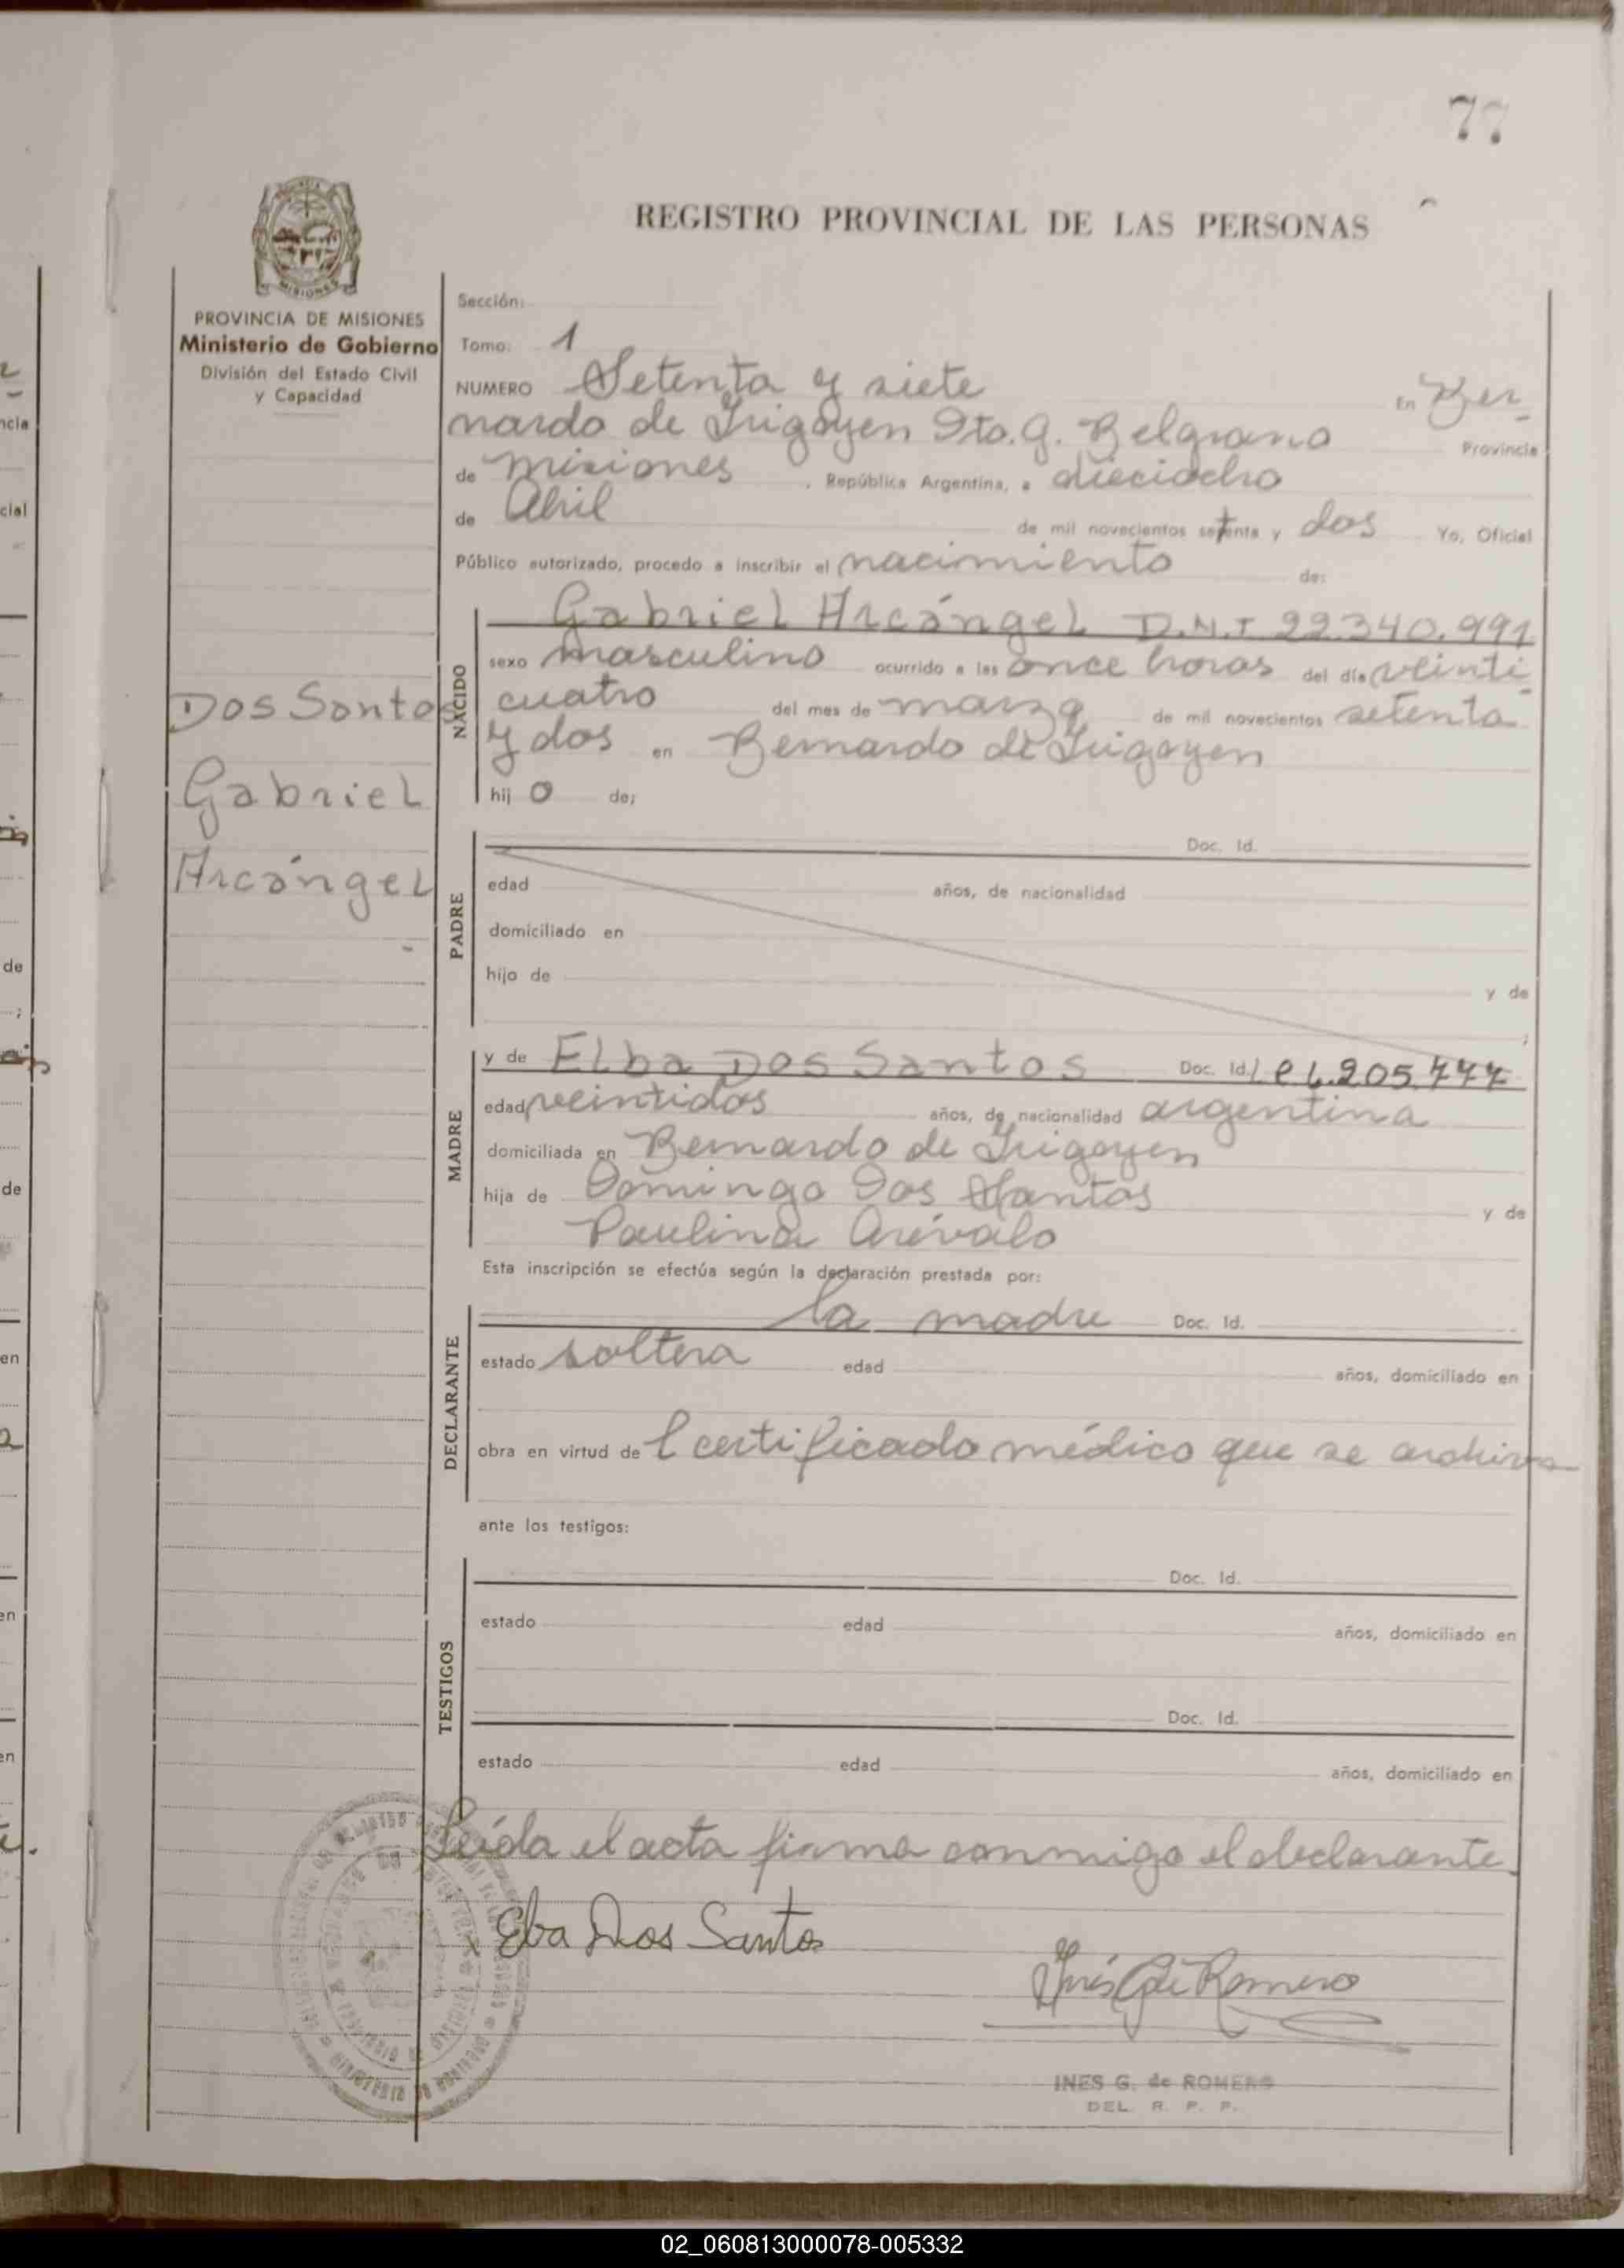 77
REGISTRO PROVINCIAL DE LAS PERSONAS
PROVINCIA DE MISIONES
Ministerio de Gobierno
División del Estado Civil
y Capacidad
Sección:
Tomo: 1
NUMERO Setenta y siete En Ber-
nardo de Irigoyen Dto. G. Belgrano Provincia
de misiones, República Argentina, a dieciocho
de Abril de mil novecientos setenta y dos Yo, Oficial
Público autorizado, procedo a inscribir el nacimiento de:
Dos Santos
Gabriel
Arcángel
NACIDO
Gabriel Arcángel D.N.I 22.340.991
sexo masculino ocurrido a las once horas del día veinti-
cuatro del mes de marzo de mil novecientos setenta
y dos en Bernardo de Irigoyen
hij o de:
PADRE
Doc. Id.
edad años, de nacionalidad
domiciliado en
hijo de y de
;
MADRE
y de Elba Dos Santos Doc. Id.
edad veintidos años, de nacionalidad argentina
domiciliada en Bernardo de Irigoyen
hija de Domingo Dos Santos y de
Paulina Arévalo
Esta inscripción se efectúa según la declaración prestada por:
DECLARANTE
la madre Doc. Id.
estado soltera edad años, domiciliado en
obra en virtud de l certificado médico que se archiva
ante los testigos:
TESTIGOS
Doc. Id.
estado edad años, domiciliado en
Doc. Id.
estado edad años, domiciliado en
Leída el acta firma conmigo el declarante.
Elba Dos Santos
Inés G de Romero
INES G. de ROMERO
DEL. R. P. P.
02_060813000078-005332